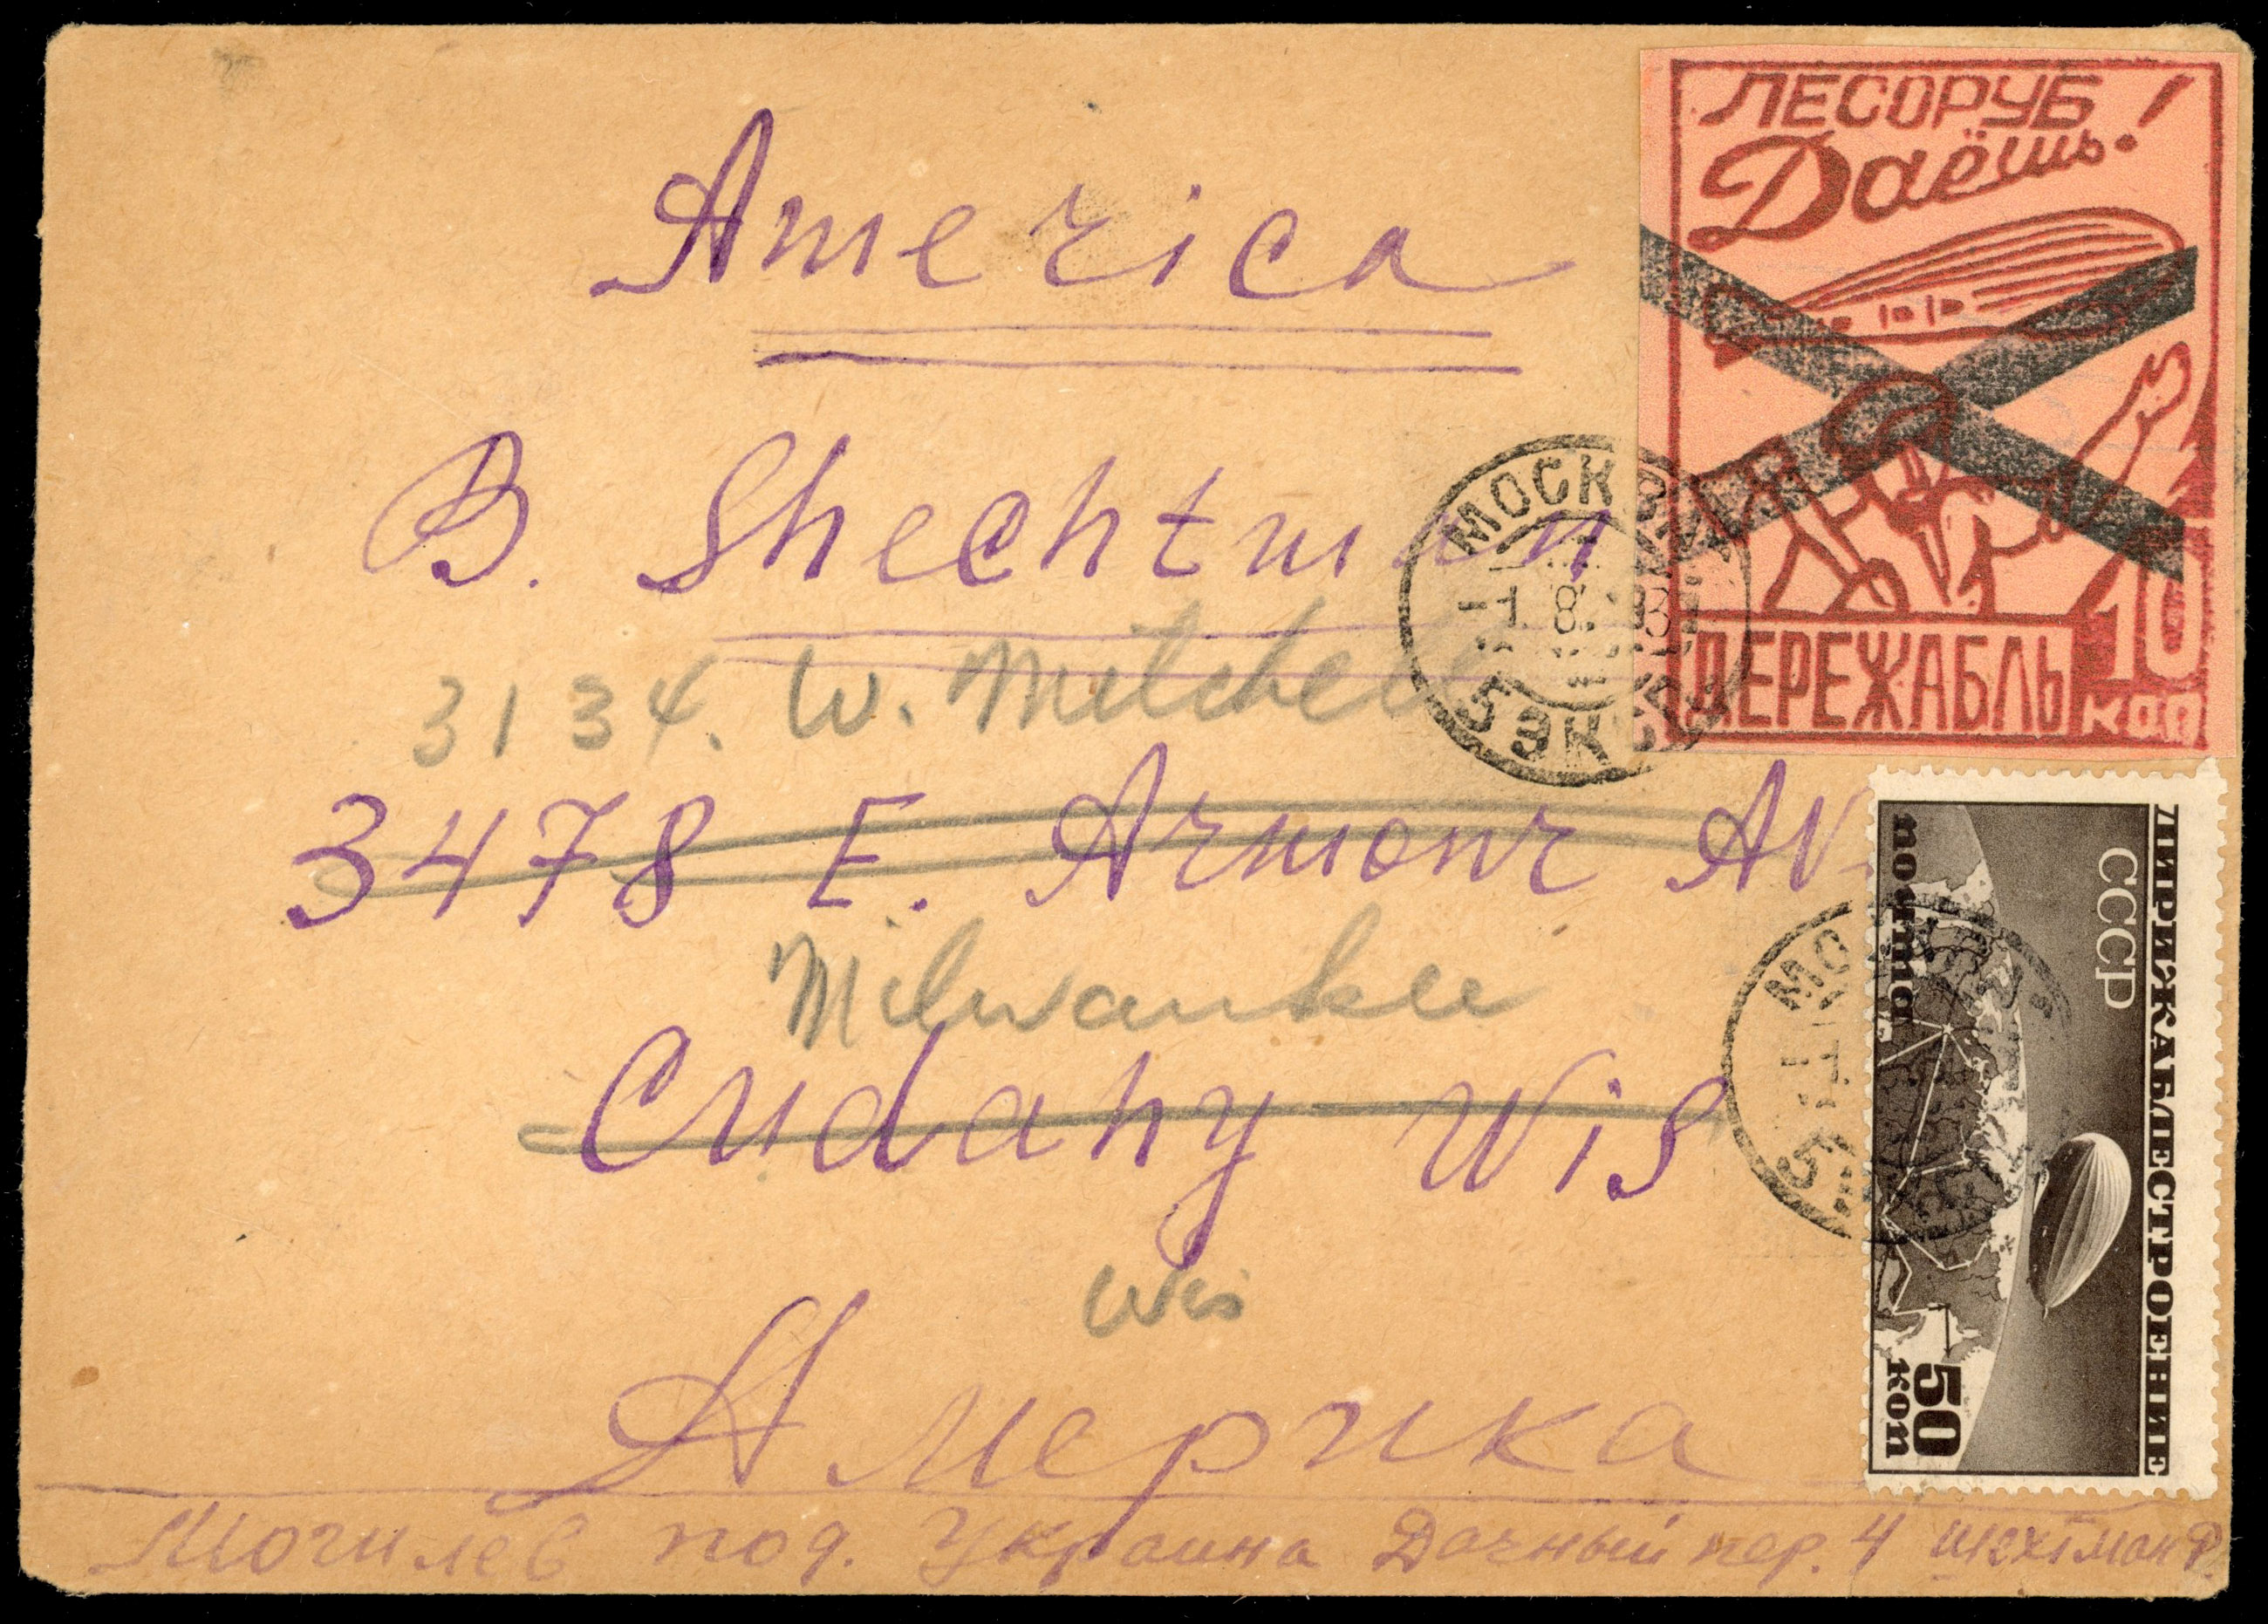 America
B. Shechtman
3134. W. Mitchell
3478 E. Armour Av.
Milwaukee
Cudahy Wis
Wis
Америка
Могилев под. Украина Дачный пер. 4 Шехтман Р.
ЛЕСОРУБ
Даёшь!
ДЕРЕЖАБЛЬ
10
коп
ДИРИЖАБЛЕСТРОЕНИЕ
СССР
почта
50
коп
МОСКВА
1. 8.
5 ЭКСП
МОСКВА
5